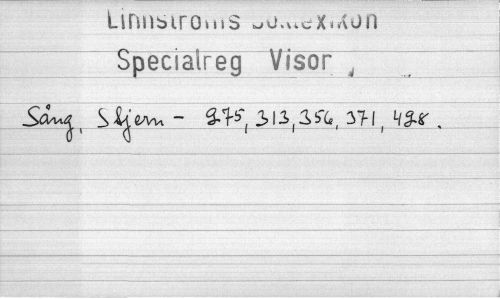 Linnströms Boklexikon
Specialreg Visor
Sång, Stjern - 275, 313, 356, 371, 428.